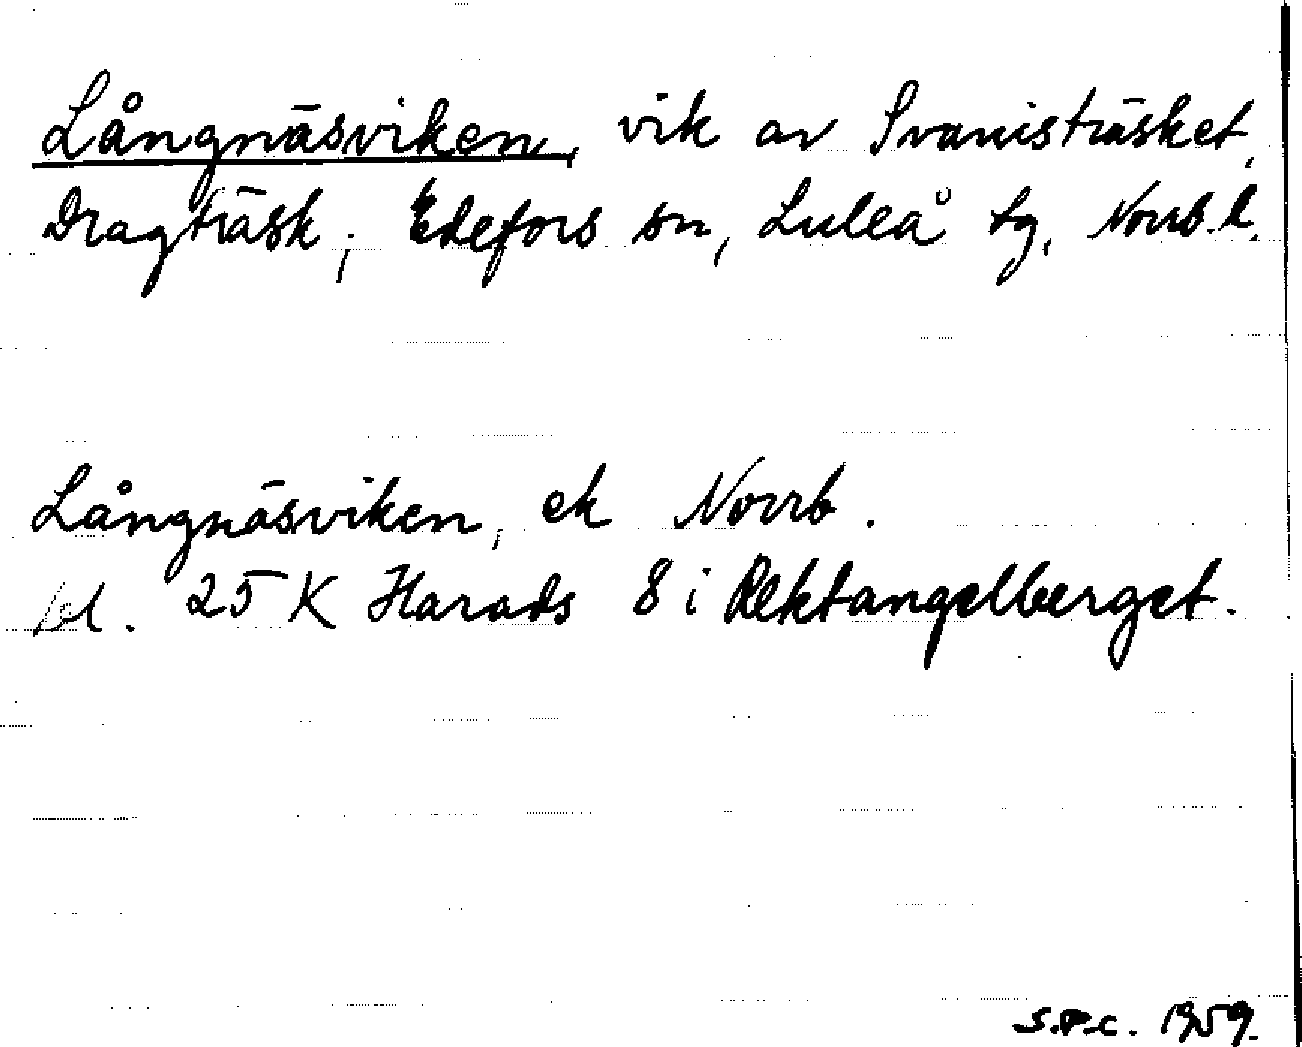 Långnäsviken, vik av Svanisträsket,
Dragträsk, Edefors sn, Luleå tg, Norrb. l.
Långnäsviken, ek Norrb.
bl. 25 K Harads 8 i Rektangelberget.
S.P.C. 1959.